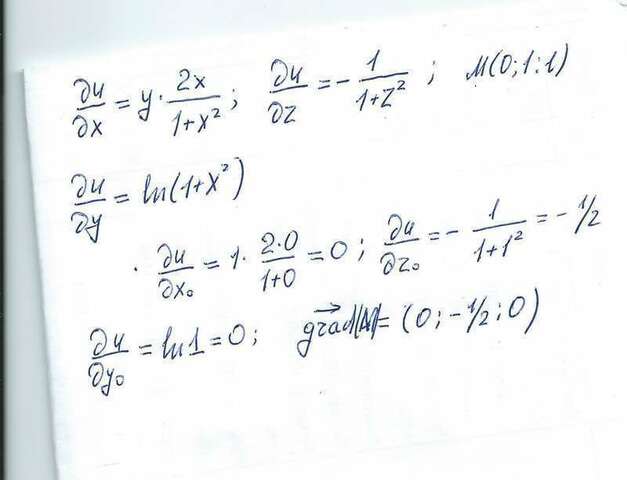 ∂u/∂x = y · 2x/(1+x²); ∂u/∂z = - 1/(1+z²); M(0;1:1)
∂u/∂y = ln(1+x²)
· ∂u/∂x₀ = 1 · 2·0/(1+0) = 0; ∂u/∂z₀ = - 1/(1+1²) = - 1/2
∂u/∂y₀ = ln 1 = 0; grad(M) = (0; -1/2; 0)